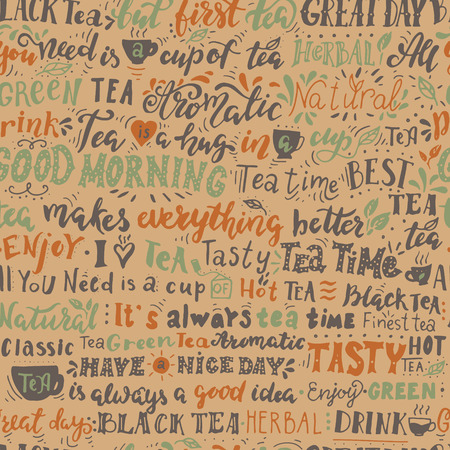 BLACK Tea but first Tea GREAT DAY B
you need is a cup of tea HERBAL All
GREEN TEA Aromatic Natural
Drink Tea is a hug in a cup TEA
GOOD MORNING Tea time BEST TEA
tea makes everything better tea
ENJOY I TEA Tasty TEA TIME A
All You Need is a cup OF HOT TEA Black Tea
Natural It's always tea time Finest tea
Classic Tea Green Tea Aromatic TASTY HOT TEA
HAVE a NICE DAY
TEA is always a good idea Enjoy GREEN
Great day BLACK TEA HERBAL DRINK